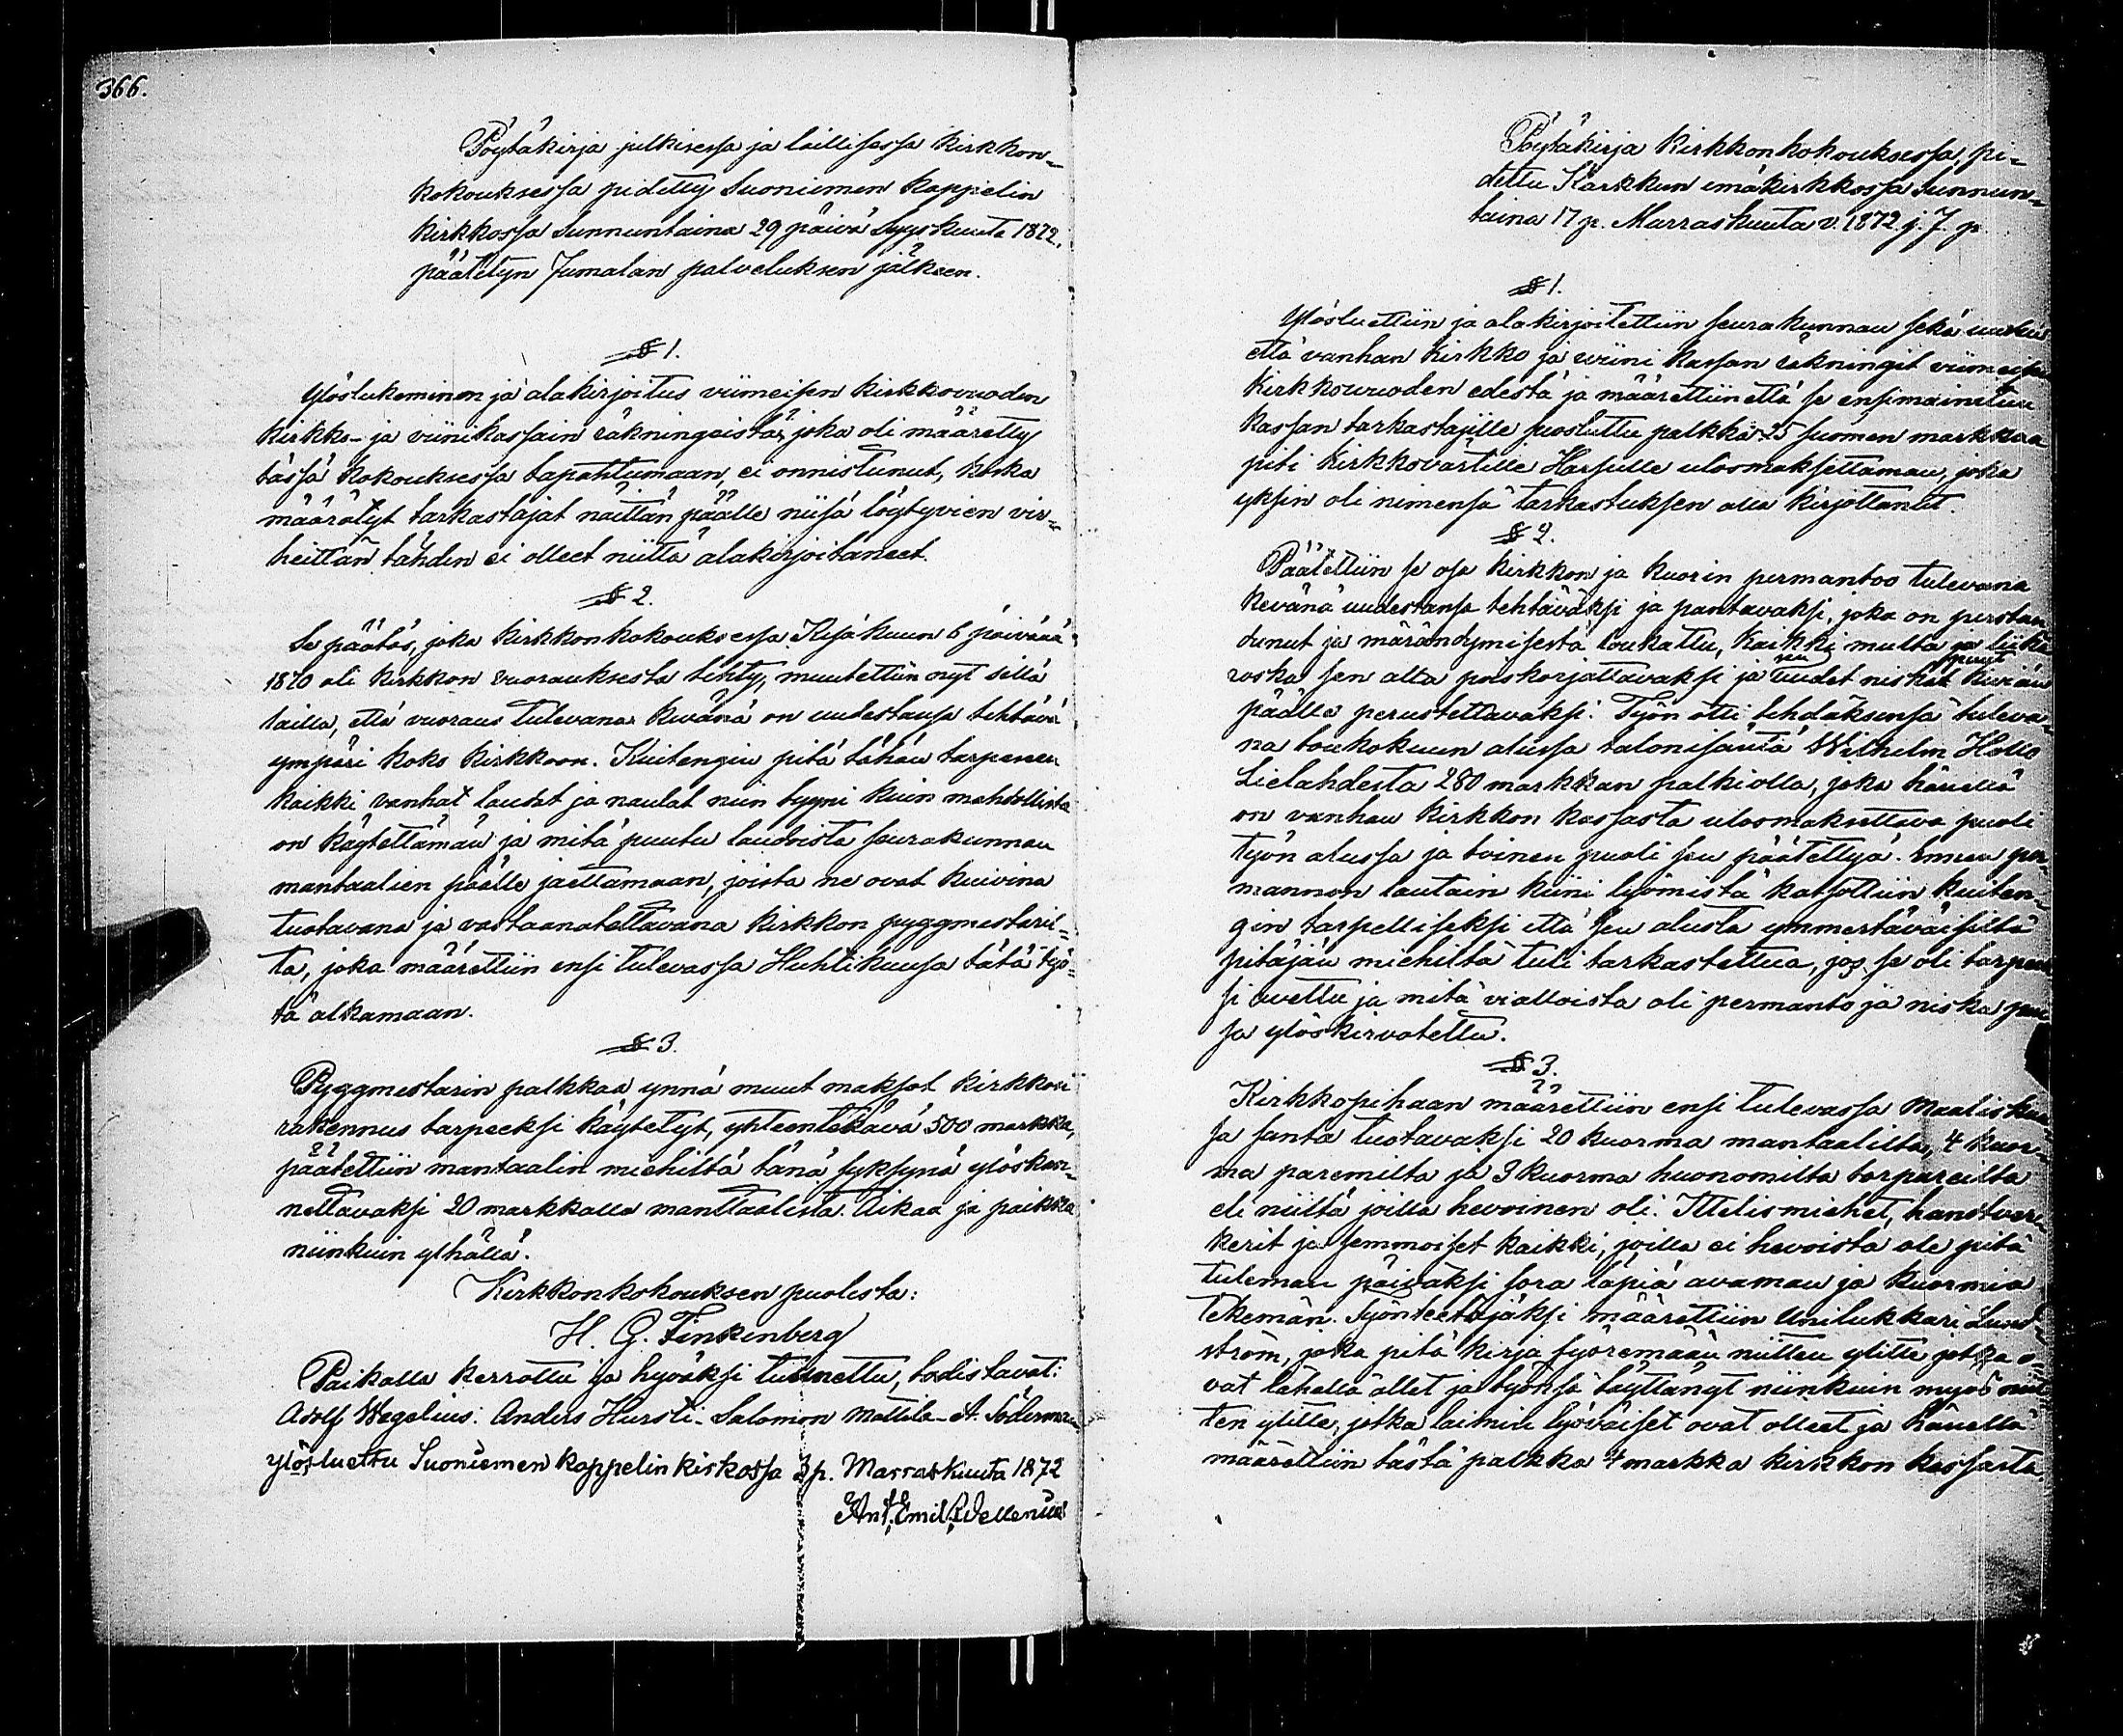 366.
Pöytäkirja julkisessa ja laillisessa Kirkkon-
kokouksessa pidetty Suoniemen kappelin
kirkkossa Sunnuntaina 29 päivä Syyskuuta 1872.
päätetyn Jumalan palveluksen jälkeen.
§ 1.
Ylöslukeminen ja alakirjoitus viimeisen kirkkovuoden
kirkko- ja viinikassain räkningeistä, joka oli määretty
tässä kokouksessa tapahtumaan, ei onnistunut, koska
määrätyt tarkastajat näittän päälle niisä löytyvien vir-
heittän tähden ei olleet niittä alakirjoitaneet.
§ 2.
Se päätös, joka kirkkonkokouksessa Kesäkuun 6 päivänä
1870 oli kirkkon vuorauksesta tehty, muutettiin nyt sillä
lailla, että vuoraus tulevana keväná on uudestansa tehtävä
ympäri koko kirkkoon. Kuitengin pitä tähän tarpeeen
kaikki vanhat laudat ja naulat niin tyyni kuin mahdollista
on käytettämän ja mitä puutu laudoista seurakunnan
mantaalien päälle jaettamaan, joista ne ovat kuivina
tuotavana ja vastaanotettavana kirkkon pyggmestaril-
ta, joka määrettiin ensi tulevassa Huhtikuusa tätä työ-
tä alkamaan.
§ 3.
Pyggmestarin palkkaa ynnä muut maksot kirkkon
rakennus tarpeeksi käytetyt, yhteentekävä 500 markka,
päätettiin mantaalin miehiltä tänä syksynä ylöskan-
nettavaksi 20 markkalla manttaalista. Aikaa ja paikka
niinkuin ylhällä.
Kirkkonkokouksen puolesta:
H. G. Finkenberg
Paikalla kerrottu ja hyväksi tunnettu, todistavat:
Adolf Wegelius. Anders Hursti - Salomon Mattila - A. Söderman
ylösluettu Suoniemen kappelin kirkossa 3 p. Marraskuuta 1872
Ant. Emil
Pöytäkirja Kirkkonkokouksessa, pi-
dettu Karkkun emäkirkkossa Sunnun-
taina 17 p. Marraskuuta v. 1872. j. J. p.
§ 1.
Ylösluettiin ja alakirjoitettiin seurakunnan sekä uuden
että vanhan Kirkko ja viini kassan räkningit viimeisen
Kirkkovuoden edestä ja määrettiin että se ensimainitun
kassan tarkastajille suosluttu palkka 25 suomen markkaa
piti Kirkkovartille Harsulle ulosmaksettaman, joka
yksin oli nimensä tarkastuksen alla kirjottanut.
§ 2.
Päätettiin se osa kirkkon ja kuorin permantoo tulevana
kevänä uudestansa tehtäväksi ja pantavaksi, joka on
dunut ja märändymisestä loukattu, kaikki multa ja liika
roska sen alta poiskorjattavaksi ja uudet niskat puut
päälle perustettavaksi. Työn otti tehdäksensä tuleva-
na toukokuun alussa talonisäntä Wilhelm
Lielahdesta 280 markkan palkiolla, joka hänellä
on vanhan kirkkon kassasta ulosmaksettava puoli
työn alussa ja toinen puoli sen päätettyä. Ennen per-
mannon lautain kiini lyömistä katsottiin kuiten-
gin tarpelliseksi että sen alusta ymmertäväisiltä
pitäjän miehiltä tuli tarkastettua, jos se oli tarpeek-
si avettu ja mitä viattoista oli permanto ja niska puu
sa ylöskirvotettu.
§ 3.
Kirkkopihaan määrettiin ensi tulevassa Maaliskuu-
sa santa tuotavaksi 20 kuorma mantaalilta, 4 kuor-
ma paremilta ja 3 kuorma huonomilta torpareilta
eli niiltä joilla hevoinen oli. Ittelismiehet, hantver-
kerit ja semmoiset kaikki, joilla ei hevoista ole pitä
tuleman päiväksi sora läpiä avaman ja kuormia
tekemän. Työnteetäjäksi määrettiin Unilukkari Lund-
ström, joka pitä kirja fyöremään niitten ylitte jotka o-
vat lähellä ollet ja työnsä täyttänyt niinkuin myös niit-
ten ylitte, jotka laimin lyöväiset ovat olleet ja hänellä
määrettiin tästä palkka 4 markka kirkkon kassasta.